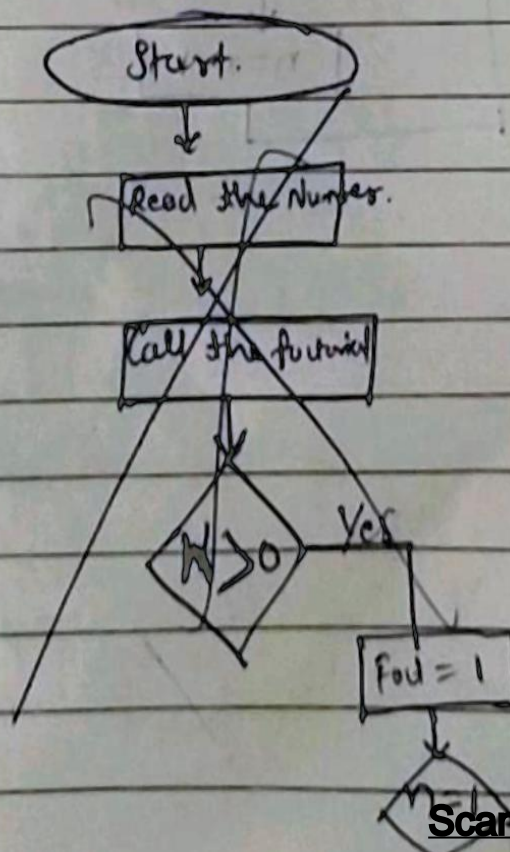 Start.
Read the Number.
Call the factorial
N > 0
Yes
Fact = 1
n = 1
Scan